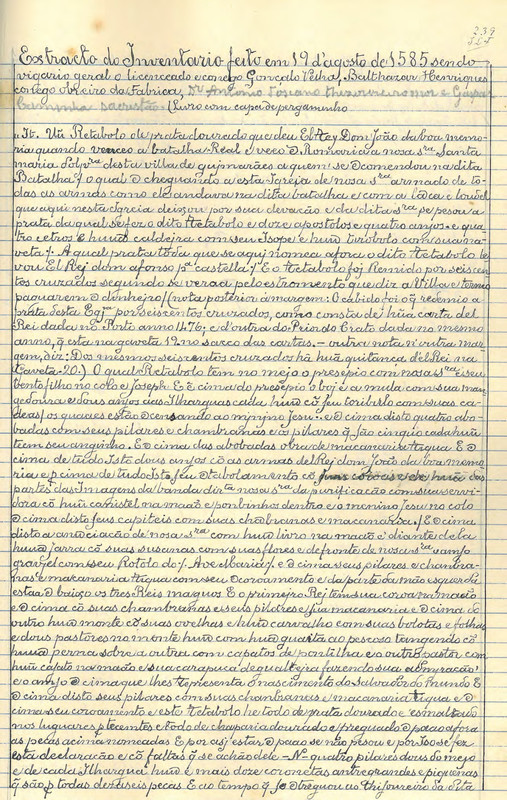 239
Extracto do Inventario feito em 19 d'agosto de 1585 sendo
vigario geral o licenceado e conego Gonçalo Velha, Balthazar Henriques
conego obreiro da Fabrica, Dr. Antonio Toscano thezoureiro mor e Gaspar
Caminha sacristão. (Livro com capa de pergaminho
"It. Hũ Retabolo de prata dourado que deu El Rey Dom João da boa memo-
ria quando venceo a batalha Real e veo de Romaria a nosa sra Santa
maria dolivra desta villa de guimarães a quem se encomendou na dita
Batalha / o qual chegando a esta Igreja de nosa sra armado de to-
das as armas como elle andava na dita batalha e com a loba e loudel
que aqui nesta Igreia deixou por sua devação e da dita sra pesou a
prata da qual se fez o dito Retabolo e doze apostolos e quatro anjos e qua
tro cetros e huma caldeira com seu Isope e huũ toribolo com sua na-
veta /. A qual prata toda que se aqui nomea afora o dito Retabolo le-
vou El Rej dom afonso pa castella / E o Retabolo foj Remido por seiscen-
tos cruzados segundo se vera pelo estromento que diz a Villa e termo
paguarem o dinheiro / (nota posterior á margem: O cabido foi q̃ redemio a
prata desta Egja por seiscentos cruzados, como consta de hũa carta del
Rei dada no Porto anno 1476; e d'outra do Prior do Crato dada no mesmo
anno, q̃ esta na gaveta 19 no sacco das cartas. — outra nota n'outra mar-
gem, diz: Dos mesmos seiscentos cruzados há hũa quitança d'el Rei na
Gaveta 20.) O qual Retabolo tem no mejo o presepio com nosa sra e seu
bento filho no colo e Joseph. E ẽ cima do presepio o boj e a mula com sua man-
gedoura e dous anjos aas Ilharguas cada huũ cõ seu toribulo com suas ca-
deas / os quaes estão ẽcensando ao minino Jesu. e ẽ cima disto quatro abo-
badas com seus pilares e chambranas e cõ pilares q̃ são cinquo cada huũ
tem seu anginho. E ẽ cima das abobadas obra de macanaria tiqua E ẽ
cima de tudo Isto dous anjos cõ as armas del Rej dom João da boa memo-
ria e p cima de tudo Iste seu ẽtabolamento cõ das
partes das Imagens da banda dirta nosa sra da purificação com sua servi-
dora cõ huũ canistel na maão e pombinhos dentro e o menino Jesu no colo
ẽ cima disto seus capiteis com suas chambranas e macanaria. / E cima
disto a anũciação de nosa sra com huũ livro na maão e diante dela
huũ jarra cõ suas susanas com suas flores e defronte de nosa sra anjo
gravjel com seu Rotolo do /. Ave Maria /. e ẽ cima seus pilares e chambra-
nas e makanaria tiqua com seu ẽcoroamento e da parte da mão esquerda
estão ẽ baixo os tres Reis maguos E o primejro Rej tem sua coroa na mão
e ẽ cima cõ suas chambranas e seus pilares e sua macanaria e ẽ cima do
outro huũ monte cõ suas ovelhas e huũ carvalho com suas bolotas e folhas
e dous pastores no monte huũ com huũ guaita ao pescoso tangendo cõ
huũ perna sobre a outra com çapatos de pontilha e o outro pastor com
huũ cajato na mão e sua carapuça de gualteira fazendo sua admiração
e o anjo ẽ cima que lhes Representa o nascimento do Salvador do Mundo E
ẽ cima disto seus pilares com suas chambranas e macanaria tiqua e ẽ
cima seu coroamento e este Retabolo he todo de prata dourado e esmaltado
nos luguares ptecentes e todo de chaparia dourado e preguado ẽ pao afora
as peças acima nomeadas E por asj estar ẽ pao se não pesou e por Isso se fez
esta declaração e cõ faltas q̃ se achão dele — No quatro pilares dous do mejo
e de cada Ilhargua huũ e mais doze coronetas antre grandes e piquenas
q̃ são p todas dezaseis peças E ao tempo q̃ se ẽtregou ao thisoureiro da Pita